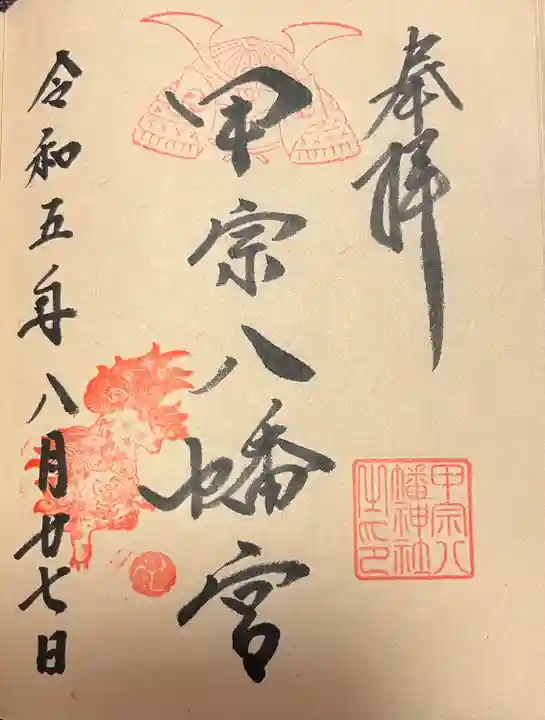 奉拝
甲宗八幡神社之印
甲宗八幡宮
令和五年八月廿七日